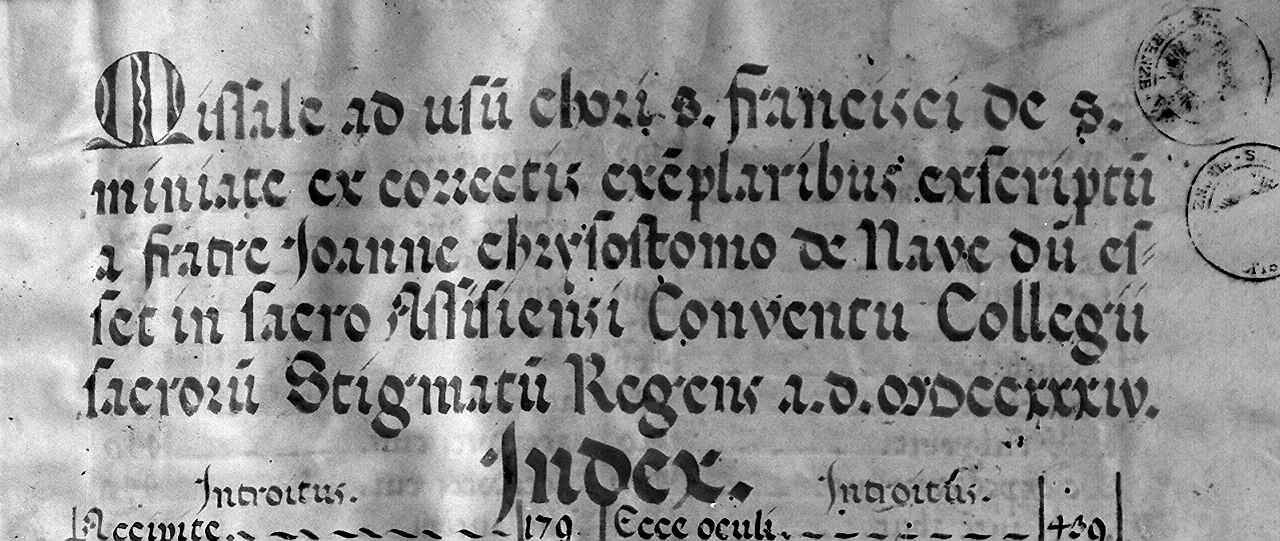 Missale ad usū chori s. francisci de s.
miniate ex correctis exēplaribus exscriptū
a fratre Joanne chrysostomo de Nave dū es-
set in sacro Assisiensi Conventu Collegii
sacrorū Stigmatū Regens a.d. MDCCXXXIV.
Index.
Introitus. Introitus.
Accipite. 179 Ecce oculi. 439